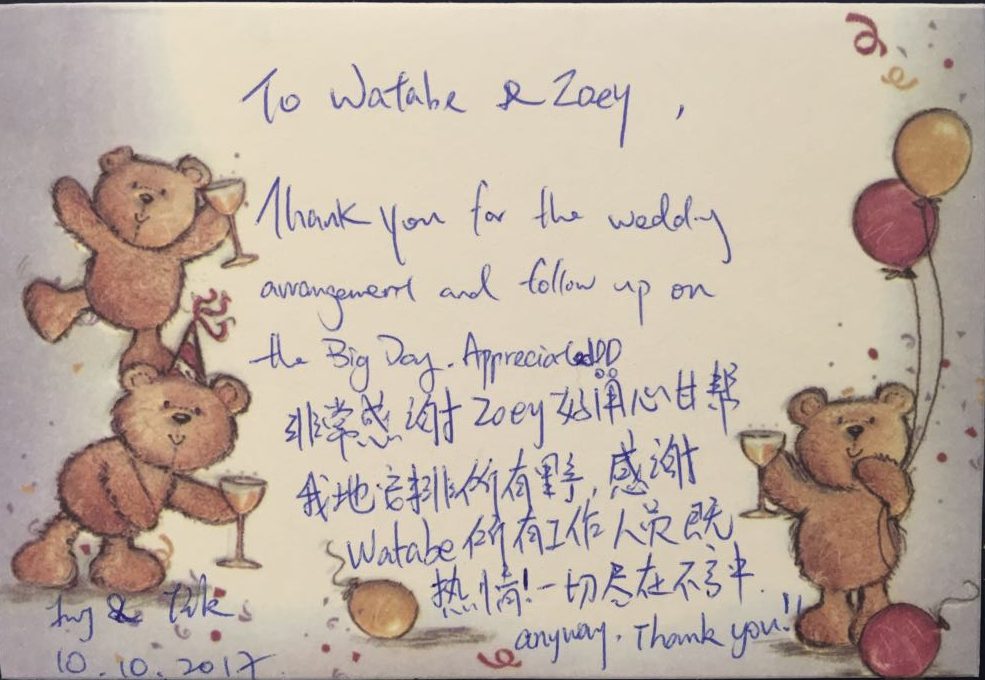 To Watabe & Zoey,
Thank you for the wedding
arrangement and follow up on
the Big Day. Appreciated!!
非常感谢 Zoey 好用心甘帮
我地安排所有野，感谢
Watabe 所有工作人员既
热情！一切尽在不言中.
anyway. Thank you!!
& Tik
10.10.2017